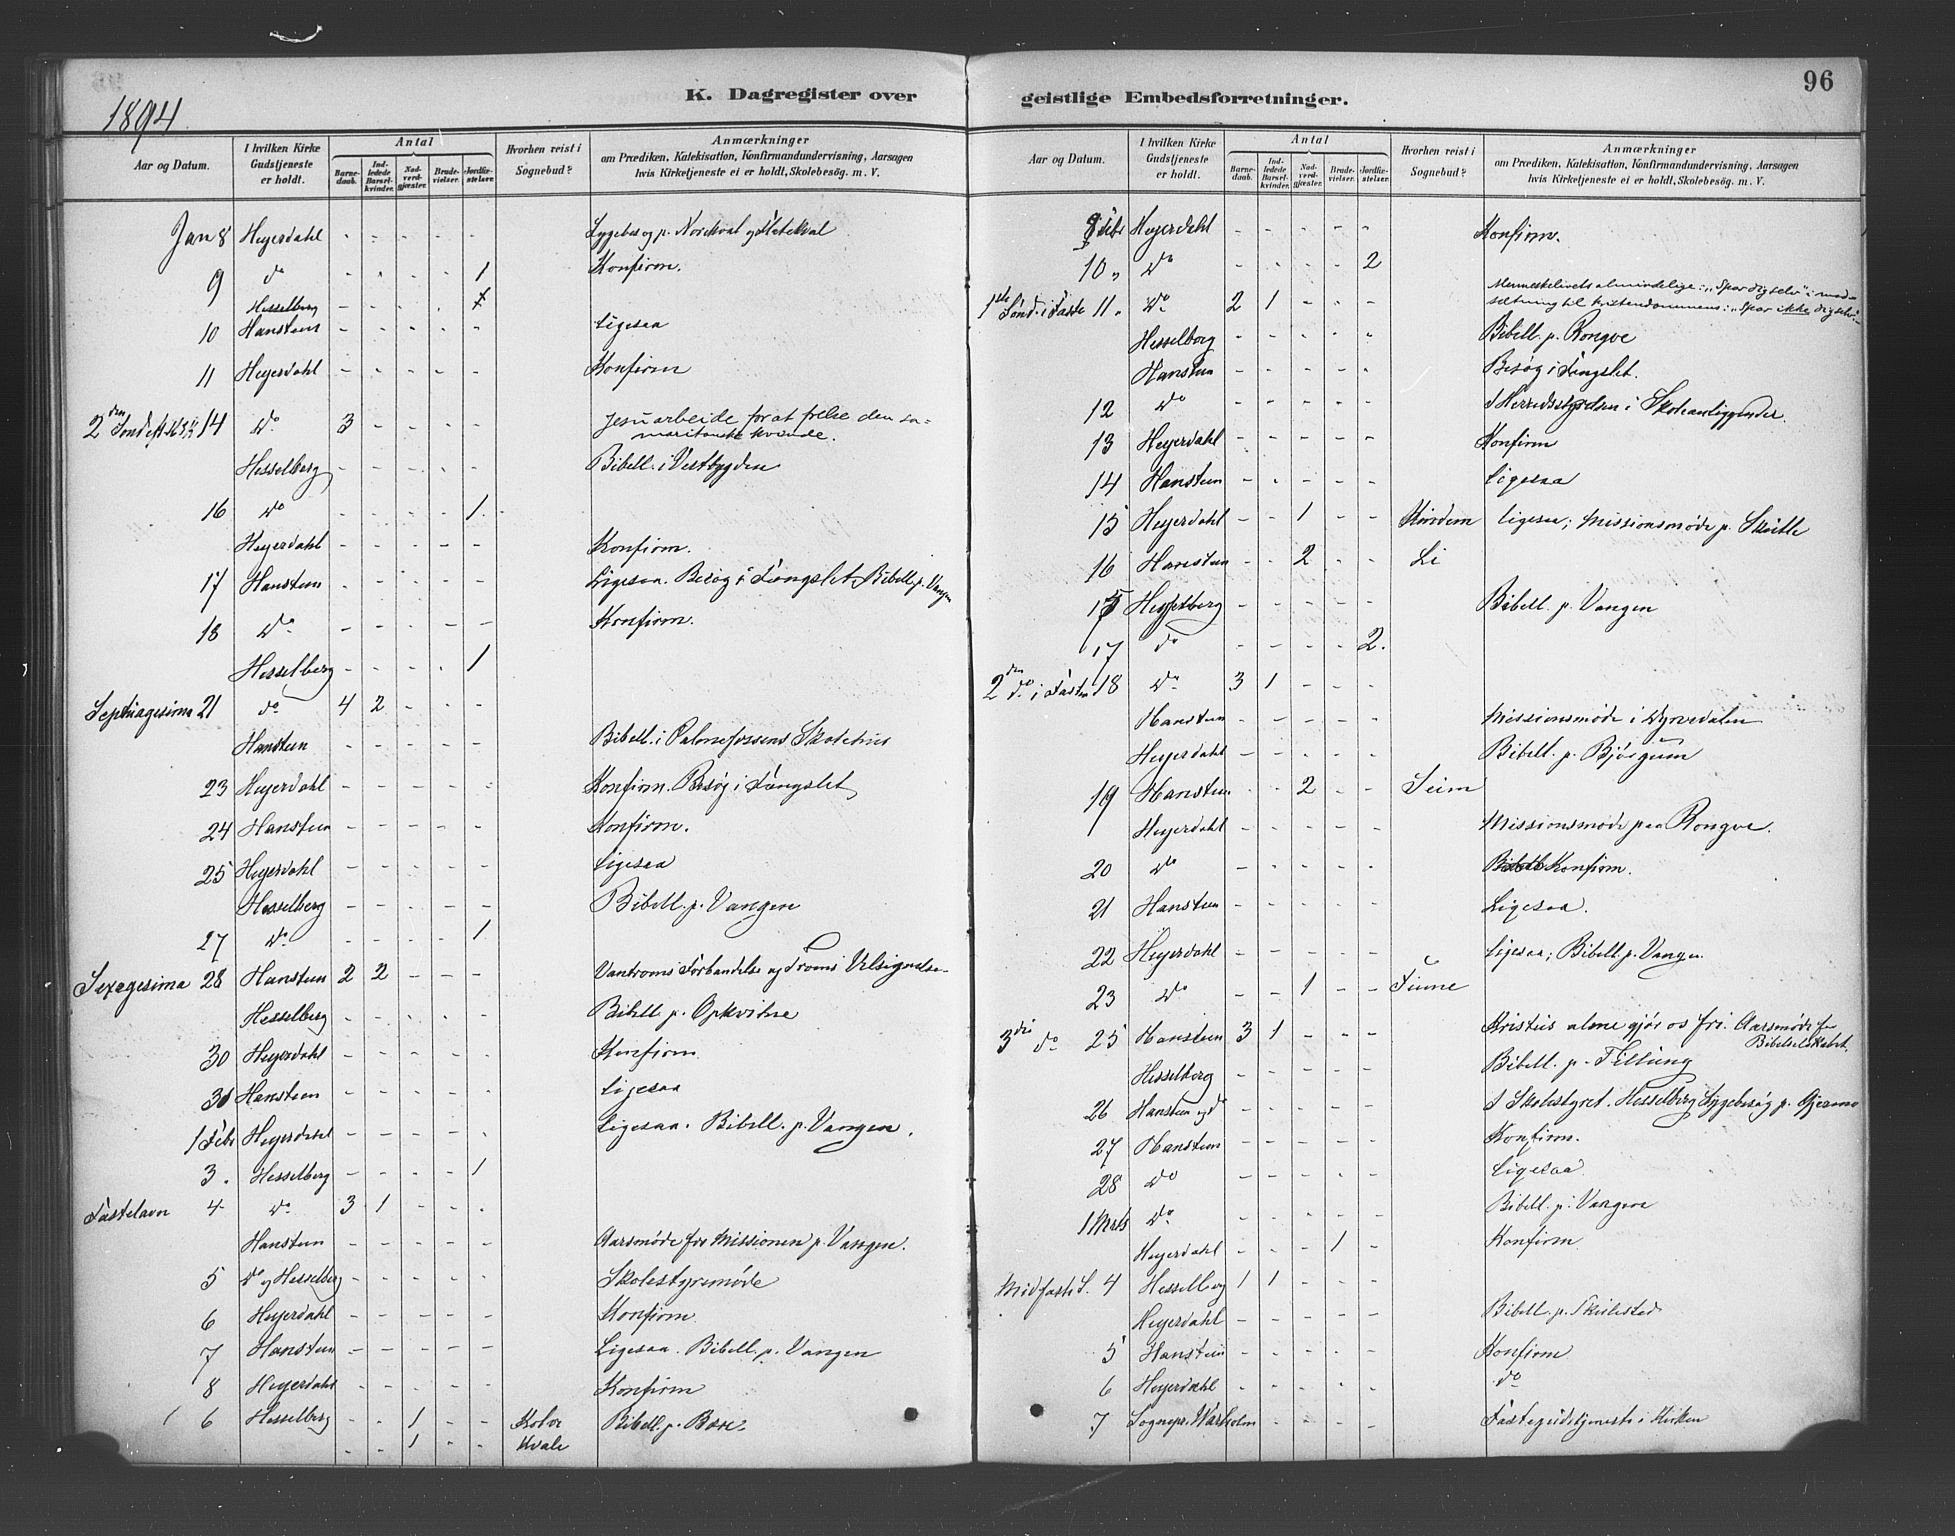 96
K. Dagregister over
geistlige Embedsforretninger.
1894
Aar og Datum.
I hvilken Kirke Gudstjeneste er holdt.
Antal
Barnedaab.
Indledede Barselkvinder.
Nadverdgjæster.
Brudevielser.
Jordfæstelser.
Hvorhen reist i Sognebud?
Anmærkninger
om Prædiken, Katekisation, Konfirmandundervisning, Aarsagen
hvis Kirketjeneste ei er holdt, Skolebesøg. m. V.
Jan 8 Heyerdahl - - - - - Sygebesog p.
9 do - - - - 1 Konfirm.
Hesselberg - - - -
10 Hansteen - - - - - Ligesaa
11 Heyerdahl - - - - - Konfirm
2den Sønd 14 Do 3 - - - - Jesu arbeide for at frelse den sa-
maritanske kvinde.
Hesselberg - - - - - Bibell. i Vestbygden
16 Do - - - - 1.
Heyerdahl - - - - - Konfirm.
17 Hansteen - - - - - Ligesaa. Besøg i Fængslet, Bibell. p. Vangen
18 Do - - - - - Konfirm.
Hesselberg - - - - 1
Septuagesima 21 do 4 2 - - -
Hansteen - - - - - Bibell. i Palmefossens Skolehus
23 Heyerdahl - - - - - Konfirm. Besøg i Fængslet
24 Hansteen - - - - - Konfirm.
25 Heyerdahl - - - - - Ligesaa
Hesselberg - - - - - Bibell. p. Vangen
27 Do - - - - 1
Sexagesima 28 Hansteen 2 2 - - - Vantroens Forbandelse og Troens Velsignelse.
Hesselberg - - - - - Bibell. p. Opkvitne
30 Heyerdahl - - - - - Konfirm.
31 Hansteen - - - - - Ligesaa
1 Febr Heyerdahl - - - - - Ligesaa. Bibell. p. Vangen.
3. Hesselberg - - - - 1
Fastelavn 4 Do 3 1 - - -
Hansteen - - - - - Aarsmøde for Missionen p. Vangen.
5 Do og Hesselberg - - - - - Skolestyremøde
6 Heyerdahl - - - - - Konfirm.
7 Hansteen - - - - - Ligesaa. Bibell. p. Vangen
8 Heyerdahl - - - - - Konfirm
6 Hesselberg - - 1 - - Kolve Bibell. p. Bøe.
- - 1 - - Kvale
Aar og Datum.
I hvilken Kirke Gudstjeneste er holdt.
Antal
Barnedaab.
Indledede Barselkvinder.
Nadverdgjæster.
Brudevielser.
Jordfæstelser.
Hvorhen reist i Sognebud?
Anmærkninger
om Prædiken, Katekisation, Konfirmandundervisning, Aarsagen
hvis Kirketjeneste ei er holdt, Skolebesøg. m. V.
Febr Heyerdahl - - - - - Konfirm.
10 " Do - - - - 2
1ste Sønd. i Faste 11 " Do 2 1 - - - Menneskelivets almindelige: "Spar dig selv" i mod-
sætning til kristendommens: "Spar ikke dig selv".
Hesselberg - - - - - Bibell. p. Rongve
Hansteen - - - - - Besøg i Fængslet.
12 Do - - - - - I Herredsstyrelsen i Skoleanliggender.
13 Heyerdahl - - - - - Konfirm
14 Hansteen - - - - - Ligesaa
15 Heyerdahl - - 1 - - Ligesaa; Missionsmøde p.
16 Hansteen - - 2 - - Li
15 Hesselberg - - - - - Bibell. p. Vangen
17 do - - - - 2.
2den do i Fasten 18 Do 3 1 - - -
Hansteen - - - - - Missionsmøde i Dyrvedalen
Heyerdahl - - - - - Bibell. p. Bjørgum
19 Hansteen - - 2 - - Seim
Heyerdahl - - - - - Missionsmøde paa Rongve.
20 Do - - - - - Konfirm.
21 Hansteen - - - - - Ligesaa.
22 Heyerdahl - - - - - Ligesaa; Bibell. p. Vangen
23 Do - - 1 - -
3die do 25 Hansteen 3 1 - - - Kristus alene gjør os fri. Aarsmøde for
Bibelselskabet.
Hesselberg - - - - - Bibell. p.
26 Hansteen og do - - - - - I Skolestyret. Hesselberg Sygebesøg p. Gjerme
27 Hansteen - - - - - Konfirm.
28 Do - - - - - Ligesaa
1 Mars Do - - - - - Bibell. p. Vangen
Heyerdahl - - - 1 - Konfirm
Midfaste S. 4 Hesselberg 1 1 - - -
Heyerdahl - - - - - Bibell. p. Skulestad
5 Hansteen - - - - - Konfirm
6 Heyerdahl - - - - - do
7 Sognepr. Warholm - - - - - Fastegudstjeneste i Kirken